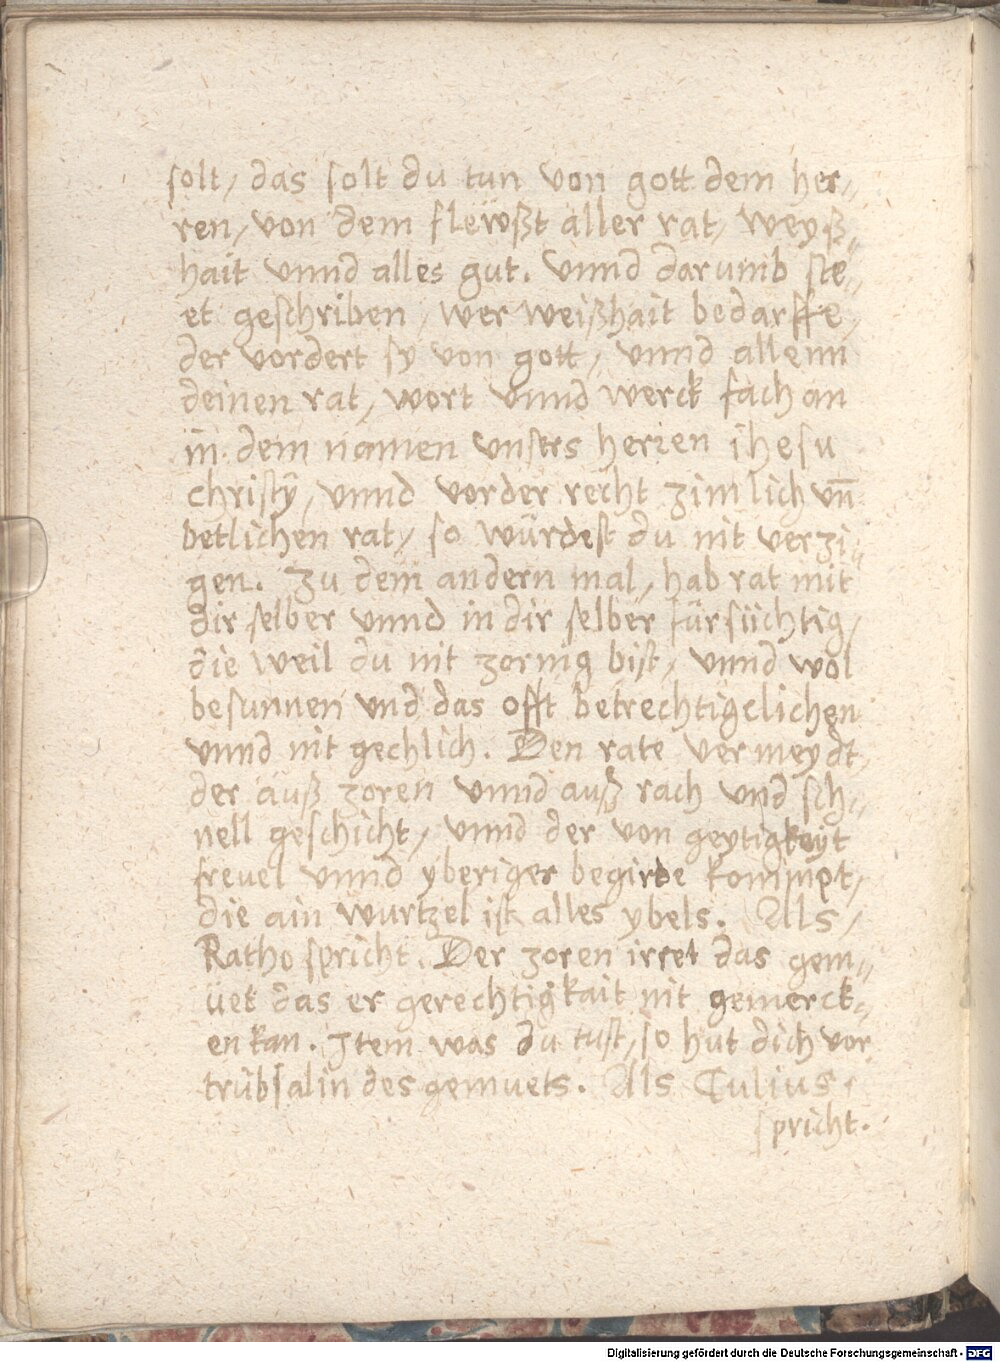 solt, das solt du tun von gott dem her„
ren, von dem flewßt aller rat, weyß„
hait vnnd alles gut. vnnd darumb ste„
et geschriben, wer weißhait bedarffe,
der vordert sy von gott, vnnd allenn
deinen rat, wort vnnd werck fach an
in dem namen vnsers herren ihesu
christÿ, vnnd vorder recht zimlich vn̄
betlichen rat, so würdest du nit verzi„
gen. Zu dem andern mal, hab rat mit
dir selber vnnd in dir selber fürsiichtig,
die weil du nit zornig bist, vnnd wol
besunnen vnd das offt betrechtigelichen
vnnd nit gechlich. Den rate vermeydt,
der auß zoren vnnd auß rach vnd sch„
nell geschicht, vnnd der von geytigkeyt
frevel vnnd yberiger begirde kommpt,
die ain wurtzel ist alles ybels. Als,
Ratho spricht. Der zoren irret das gem„
üet das er gerechtigkait nit gemerck„
en kan. Jtem was du tust, so hut dich vor
trübsalin des gemuets. Als Tulius
spricht.
Digitalisierung gefördert durch die Deutsche Forschungsgemeinschaft - DFG